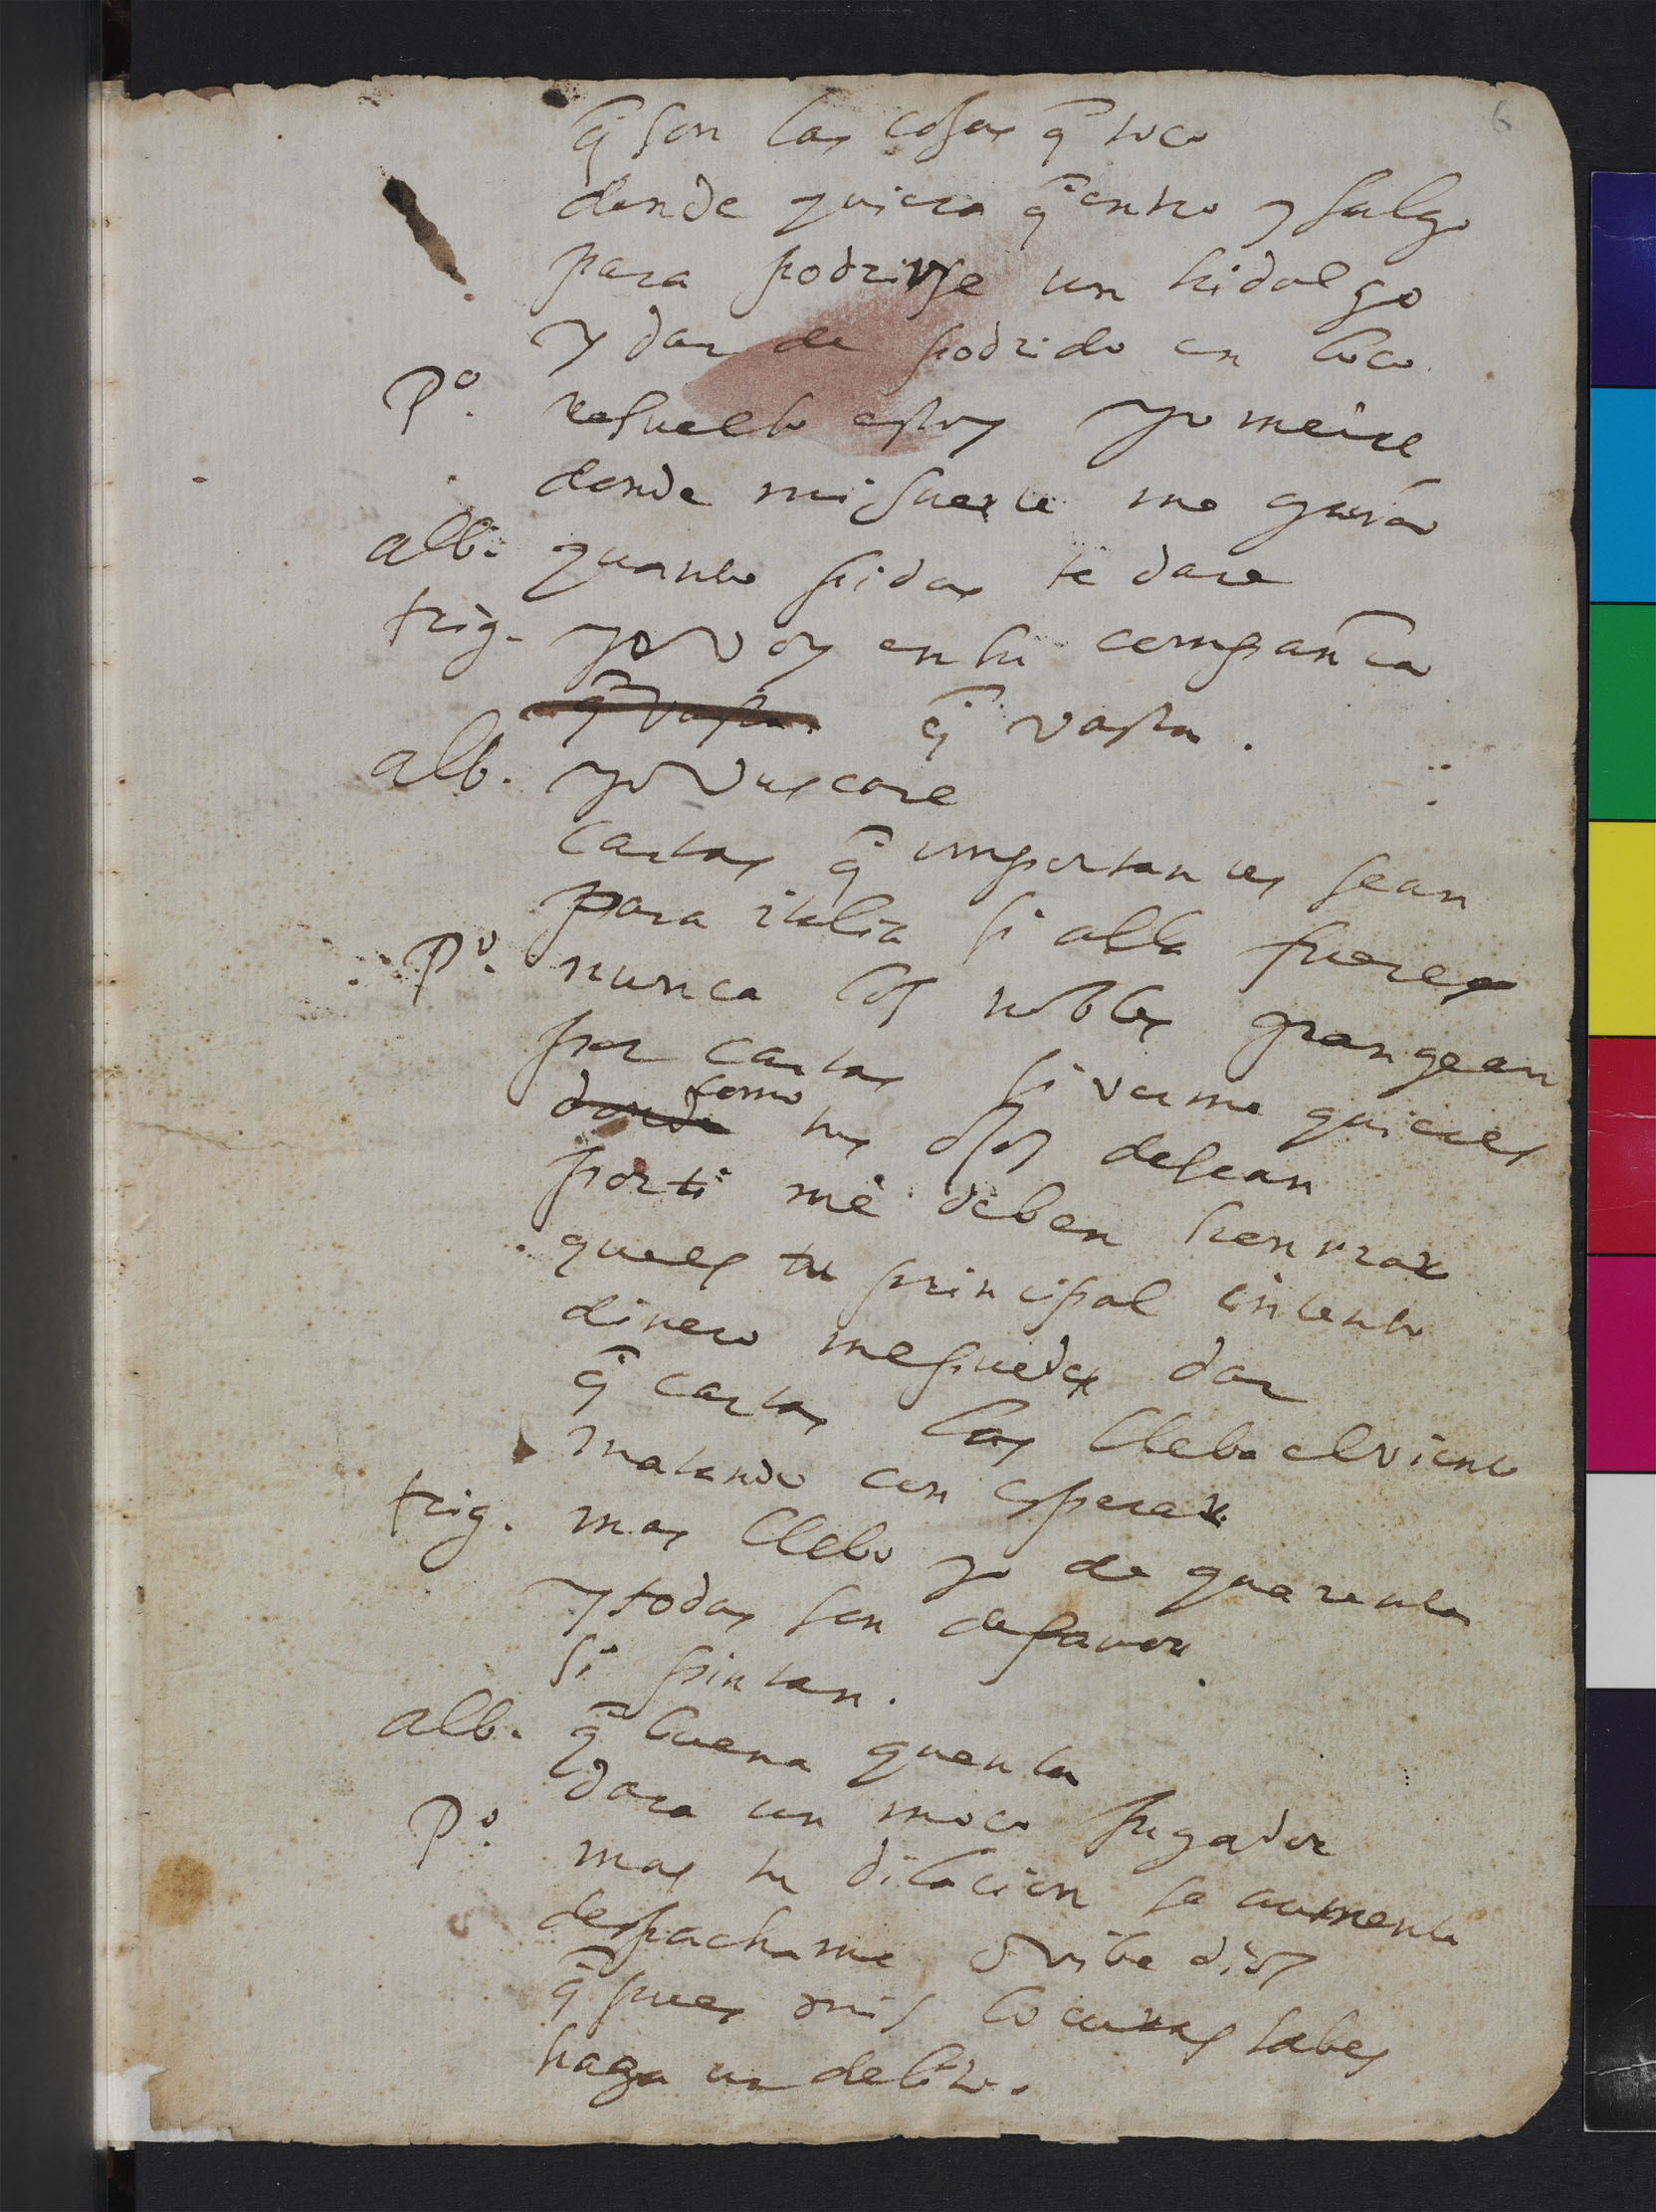 6
q̃ son las cosas q̃ toco
donde quiera q̃ entro y salgo
para podrirse un hidalgo
y dar de podrido en loco
P.º resuelto estoy yo me ire
donde mi suerte me guia
alb. quanto pidas te dare
trig. yo voy en tu compañia
q̃ vasta q̃ vasta.
alb. yo vuscare
cartas q̃ importantes sean
para italia si alla fueres
P.º nunca los nobles grangean
por cartas si verme quieres
donde como tus ojos desean
por ti me deben honrrar
que es tu principal intento
dinero me puedes dar
q̃ cartas las lleba el viento
matando con esperar
trig. mas llebo yo de quarenta
y todas son de favor
si pintan.
alb. q̃ buena quenta
dara un moço jugador
P.º mas tu dilacion se aumenta
despachame o vibe dios
q̃ pues mis locuras sabes
haga un delito.